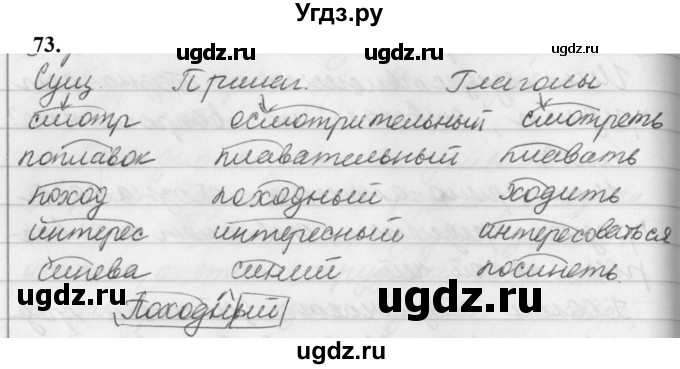 Угдз.ру
73.
ugdz.ru ugdz.ru
Сущ. Прилаг. Глаголы
смотр осмотрительный смотреть
поплавок плавательный плавать
ugdz.ru ugdz.ru
поход походный ходить
интерес интересный интересоваться
синева синий посинеть.
ugdz.ru ugdz.ru
Походный
ugdz.ru